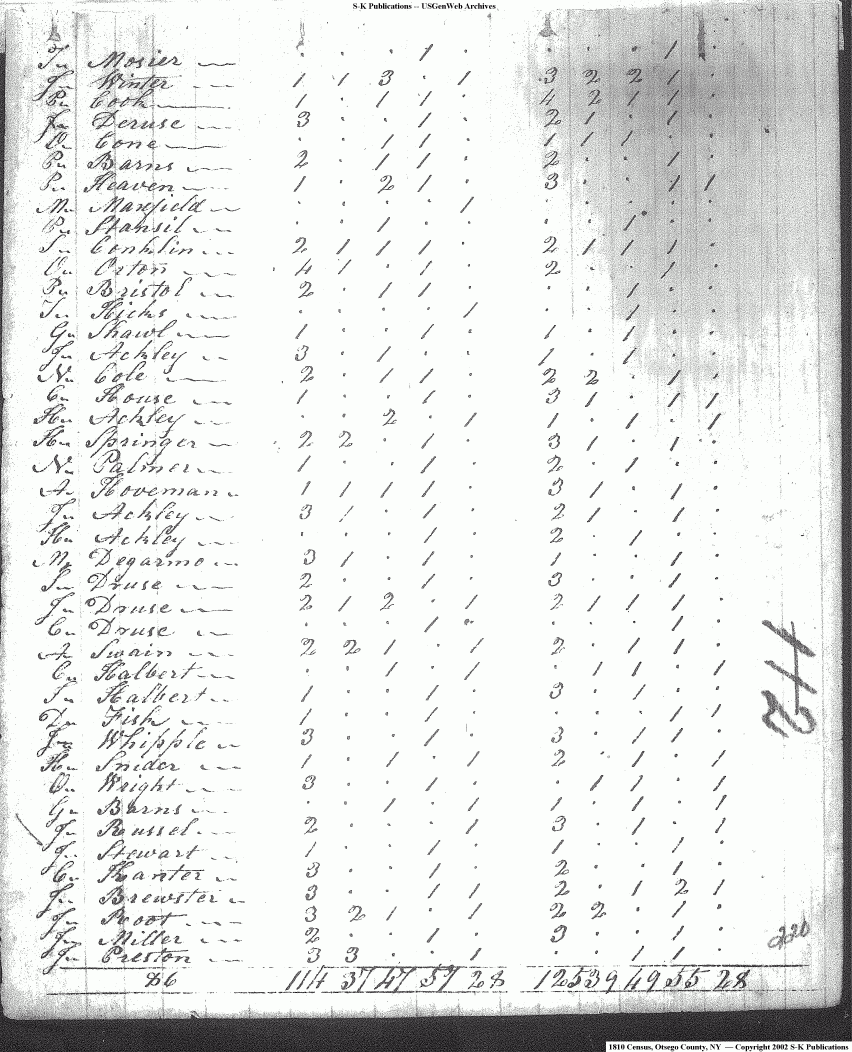 S-K Publications -- USGenWeb Archives
J. Mosier . . . 1 . . . . 1 .
J. Winter 1 1 3 . 1 3 2 2 1 .
Cook 1 . 1 1 . 4 2 1 1 .
J. Deruse 3 . . 1 . 2 1 . . .
O. Cone . . 1 1 . 1 1 1 . .
P. Barns 2 . 1 1 . 2 . . 1 .
P. Heaven 1 . 2 1 . 3 . . 1 1
M. Maxfield . . . . 1 . . . . .
P. Stansil . . 1 . . . . 1 . .
S. Conklin 2 1 1 1 . 2 1 1 1 .
O. Orton 4 1 . 1 . 2 . . 1 .
P. Bristol 2 . 1 1 . . . 1 . .
Hicks . . . . 1 . . 1 . .
G. Shawl 1 . . 1 . 1 . 1 . .
J. Ackley 3 . 1 . . 1 . 1 . .
N. Cole 2 . 1 1 . 2 2 . 1 .
C. House 1 . . 1 . 3 1 . 1 1
H. Ackley . . 2 . 1 1 . 1 . 1
H. Springer 2 2 . 1 . 3 1 . 1 .
N. Palmer 1 . . 1 . 2 . 1 . .
A. Hoveman 1 1 1 1 . 3 1 . 1 .
J. Ackley 3 1 . 1 . 2 1 . 1 .
H. Ackley . . . 1 . 2 . 1 . .
M. Degarmo 3 1 . 1 . 1 . . 1 .
S. Druse 2 . . 1 . 3 . . 1 .
J. Druse 2 1 2 . 1 2 1 1 1 .
C. Druse . . . 1 . . . . 1 .
A Swain 2 2 1 . 1 2 . 1 1 .
C. Halbert . . 1 . 1 . 1 1 . 1
J. Halbert 1 . . 1 . 3 . 1 . .
D. Fish 1 . . 1 . . . . 1 1
J. Whipple 3 . . 1 . 3 . 1 1 .
H. Snider 1 . 1 . 1 2 . 1 . 1
O. Wright 3 . . 1 . . 1 1 . 1
G. Barns . . 1 . 1 1 . 1 . 1
J. Russel 2 . . . 1 3 . 1 . 1
J. Stewart 1 . . 1 . 1 . . 1 .
C. Hanter 3 . . 1 . 2 . . 1 .
J. Brewster 3 . . 1 1 2 . 1 2 1
J. Root 3 2 1 . 1 2 2 . 1 .
J. Miller 2 . . 1 . 3 . . 1 .
J. Preston 3 3 . . 1 . . 1 1 .
114 37 47 57 28 125 39 49 55 28
112
220
1810 Census, Otsego County, NY — Copyright 2002 S-K Publications